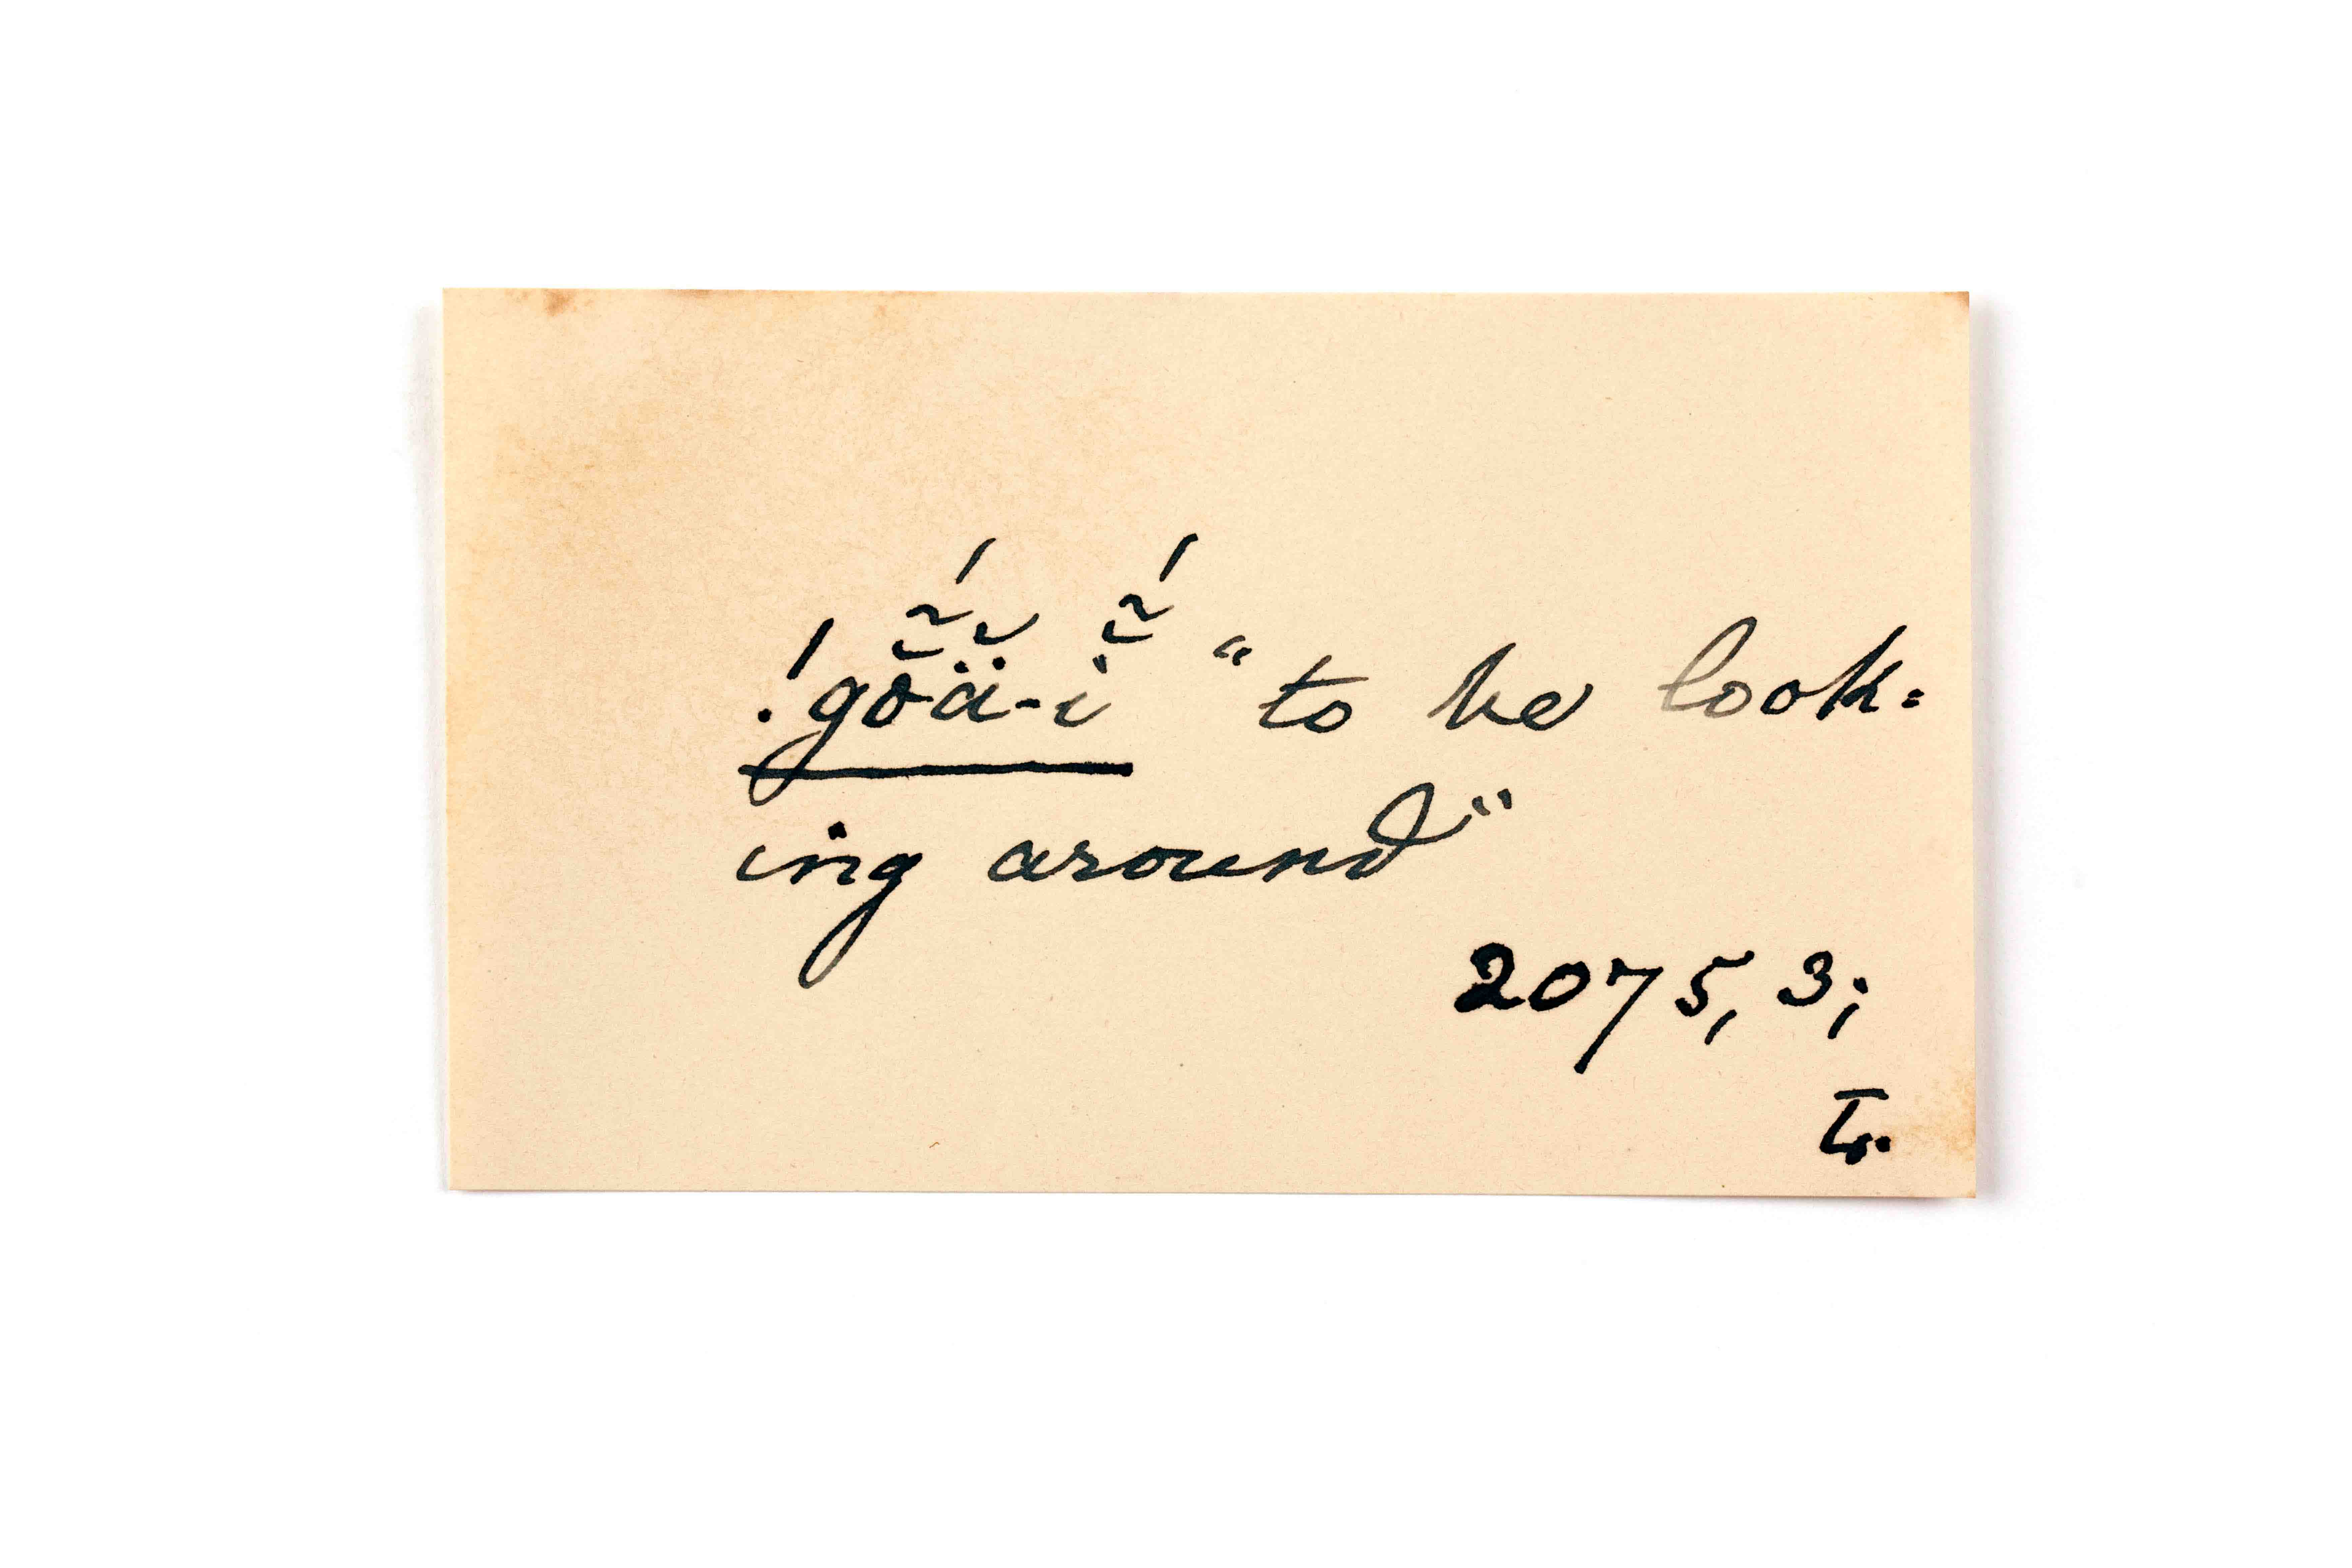 !gŏ̃́ä̆-ĭ̃́ “to be look=
ing around”
2075, 3;
Tr.